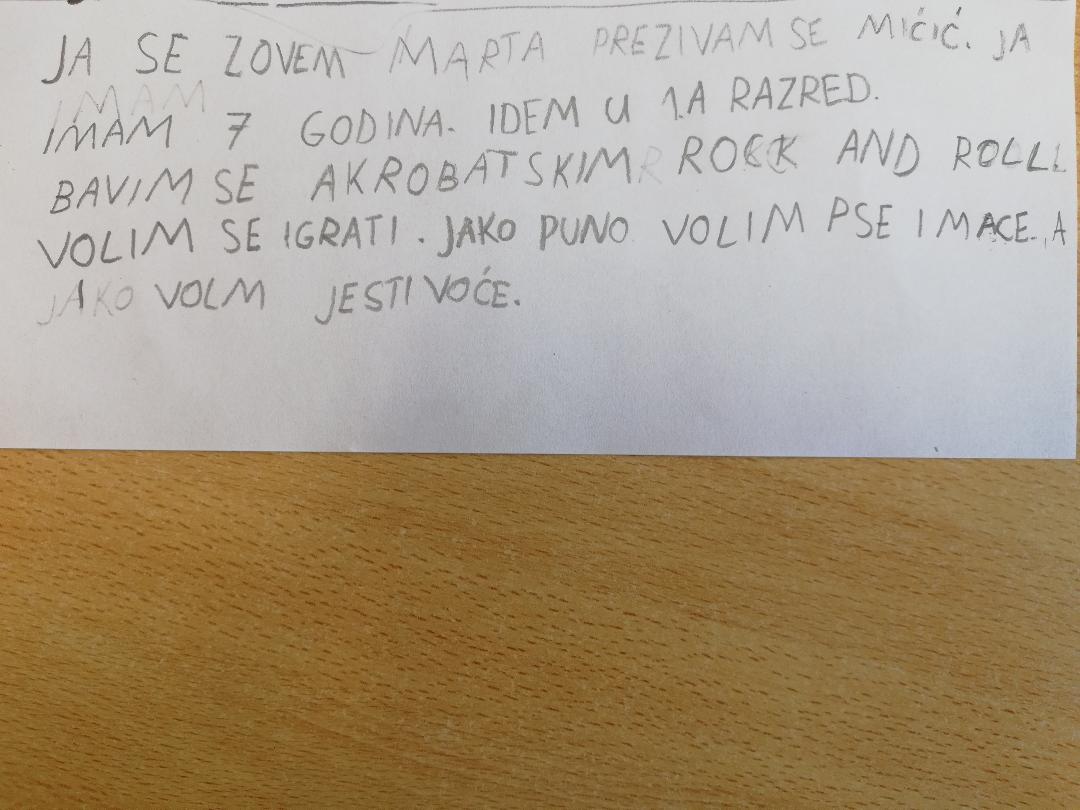 JA SE ZOVEM MARTA PREZIVAM SE MIĆIĆ. JA
IMAM 7 GODINA. IDEM U 1.A RAZRED.
BAVIM SE AKROBATSKIM ROCK AND ROLL
VOLIM SE IGRATI. JAKO PUNO VOLIM PSE I MACE. A
JAKO VOLM JESTI VOĆE.